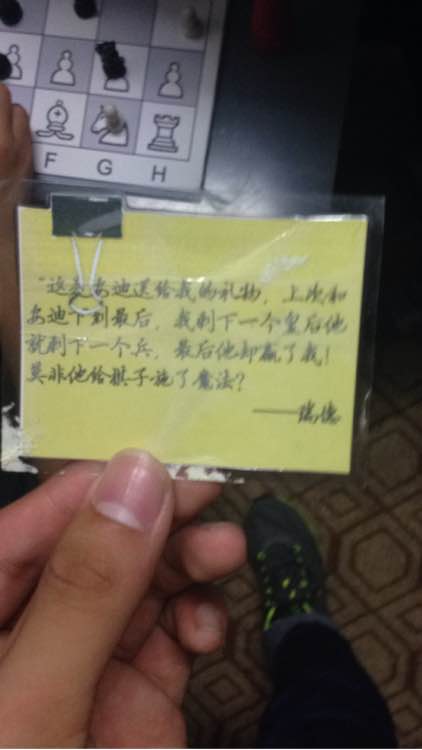 F G H
“这是安迪送给我的礼物，上次和
安迪下到最后，我剩下一个皇后他
就剩下一个兵，最后他却赢了我！
莫非他给棋子施了魔法？
——瑞德